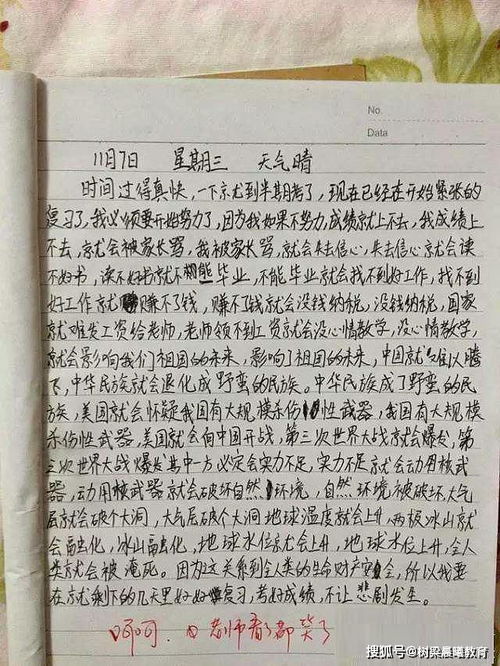 No
Data
11月7日 星期三 天气晴
时间过得真快，一下京尤到半期考了，现在已经在开始紧张的
复习了，我必须要开始努力了，因为我如果不努力，成绩就上不去，我成绩上
不去，就会被家长骂，我被家长骂，就会失去信心，失去信心就会读
不好书，读不好书就不能毕业，不能毕业就会找不到好工作，找不到
好工作就赚不了钱，赚不了钱就会没钱纳税，没钱纳税，国家
就难发工资给老师，老师领不到工资就会没心情教学，没心情教学，
就会影响我们祖国的未来，影响了祖国的未来，中国就难以腾
飞，中华民族就会退化成野蛮的民族。中华民族成了野蛮的民
族，美国就会怀疑我国有大规模杀伤性武器，我国有大规模
杀伤性武器，美国就会向中国开战，第三次世界大战就会爆发，第
三次世界大战爆发其中一方必定会实力不足，实力不足就会动用核武
器，动用核武器就会破坏自然环境，自然环境被破坏，大气
层就会破个大洞，大气层破个大洞地球温度就会上升，两极冰山就
会融化，冰山融化，地球水位就会上升，地球水位上升，全人
类就会被淹死。因为这关系到全人类的生命财产安全，所以我要
在就剩下的几天里好好复习，考好成绩，不让悲剧发生。
呵呵. 老师看了都笑了
搜狐号@树梁晨曦教育